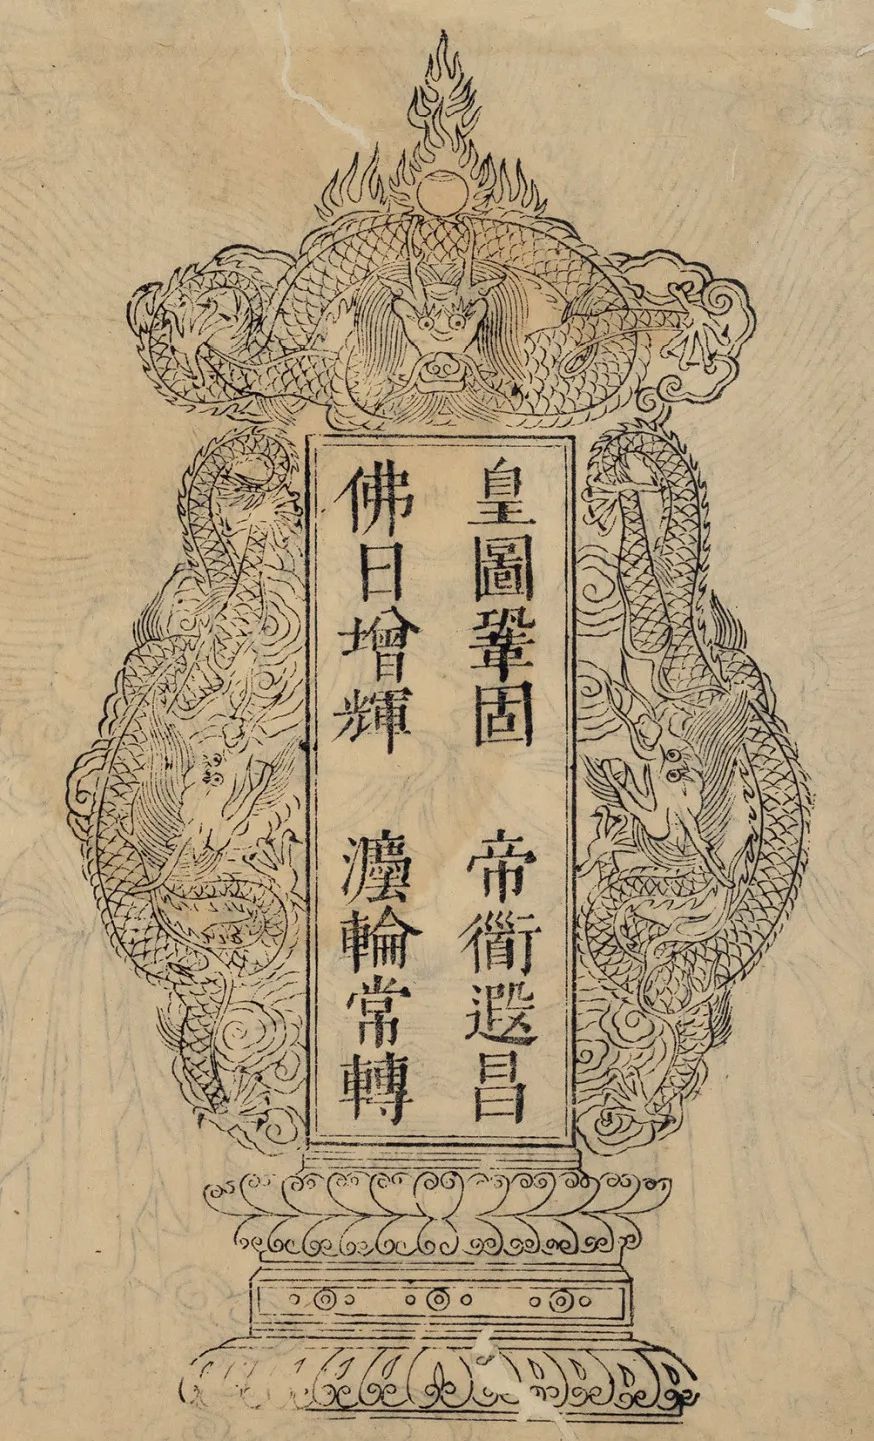 皇圖鞏固 帝衜遐昌
佛日增輝 灋輪常轉